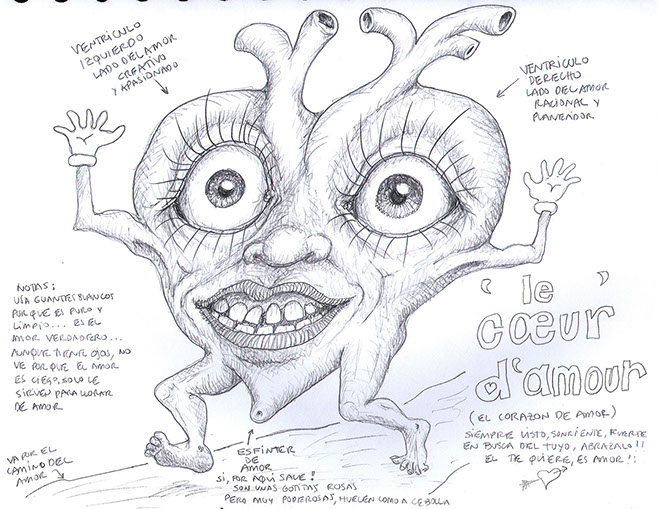 VENTRÍCULO
IZQUIERDO
LADO DEL AMOR
CREATIVO
Y APASIONADO
VENTRÍCULO
DERECHO
LADO DEL AMOR
RACIONAL Y
PLANEADOR
NOTAS;
USA GUANTES BLANCOS
PORQUE ES PURO Y
LIMPIO... ES EL
AMOR VERDADERO...
AUNQUE TIENE OJOS, NO
VE PORQUE EL AMOR
ES CIEGO, SOLO LE
SIRVEN PARA LLORAR
DE AMOR
VA POR EL
CAMINO DEL
AMOR
ESFINTER
DE
AMOR
SI, POR AQUÍ SALE!
SON UNAS GOTITAS ROSAS
PERO MUY PODEROSAS, HUELEN COMO A CEBOLLA
'le
cœur'
d'amour
(EL CORAZON DE AMOR)
SIEMPRE LISTO, SONRIENTE, FUERTE
EN BUSCA DEL TUYO, ABRAZALO!!
EL TE QUIERE, ES AMOR!!